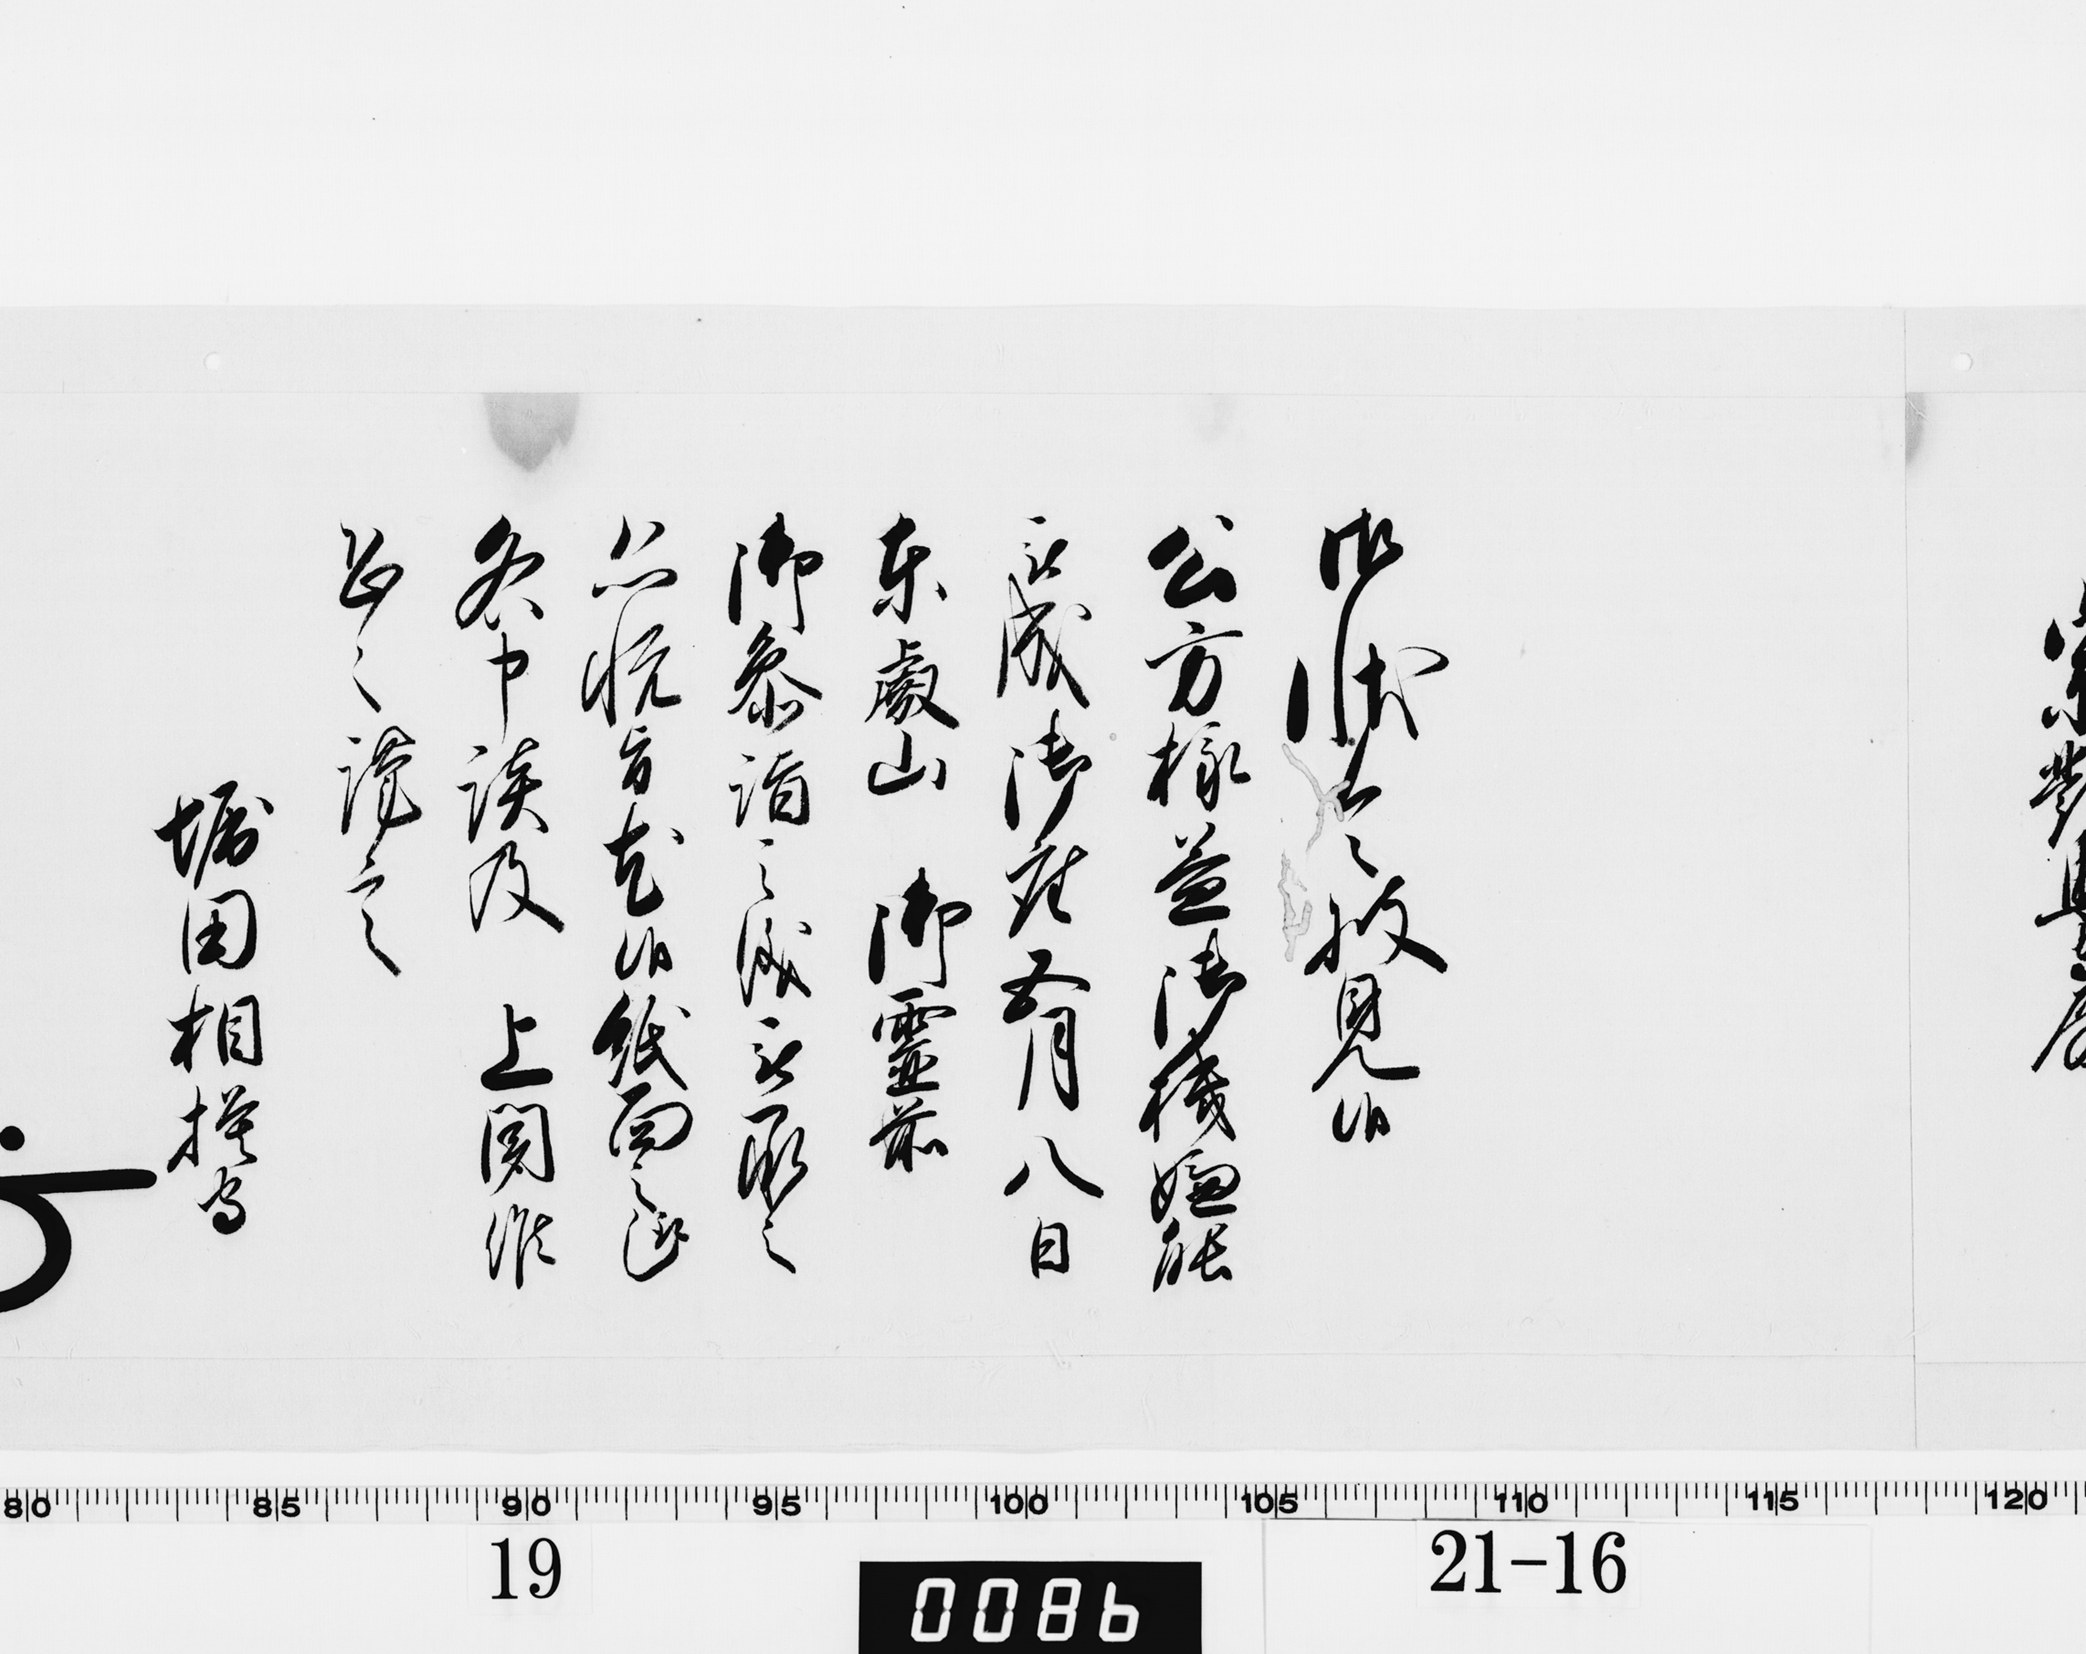 御状令披見候
公方様益御機嫌能
被成御座五月八日
東叡山 御霊前
御参詣之儀被承之
恐悦旨尤候紙面之趣
各申談及 上聞候
恐々謹言
堀田相模守
80 85 90 95 100 105 110 115 120
19
21-16
0086